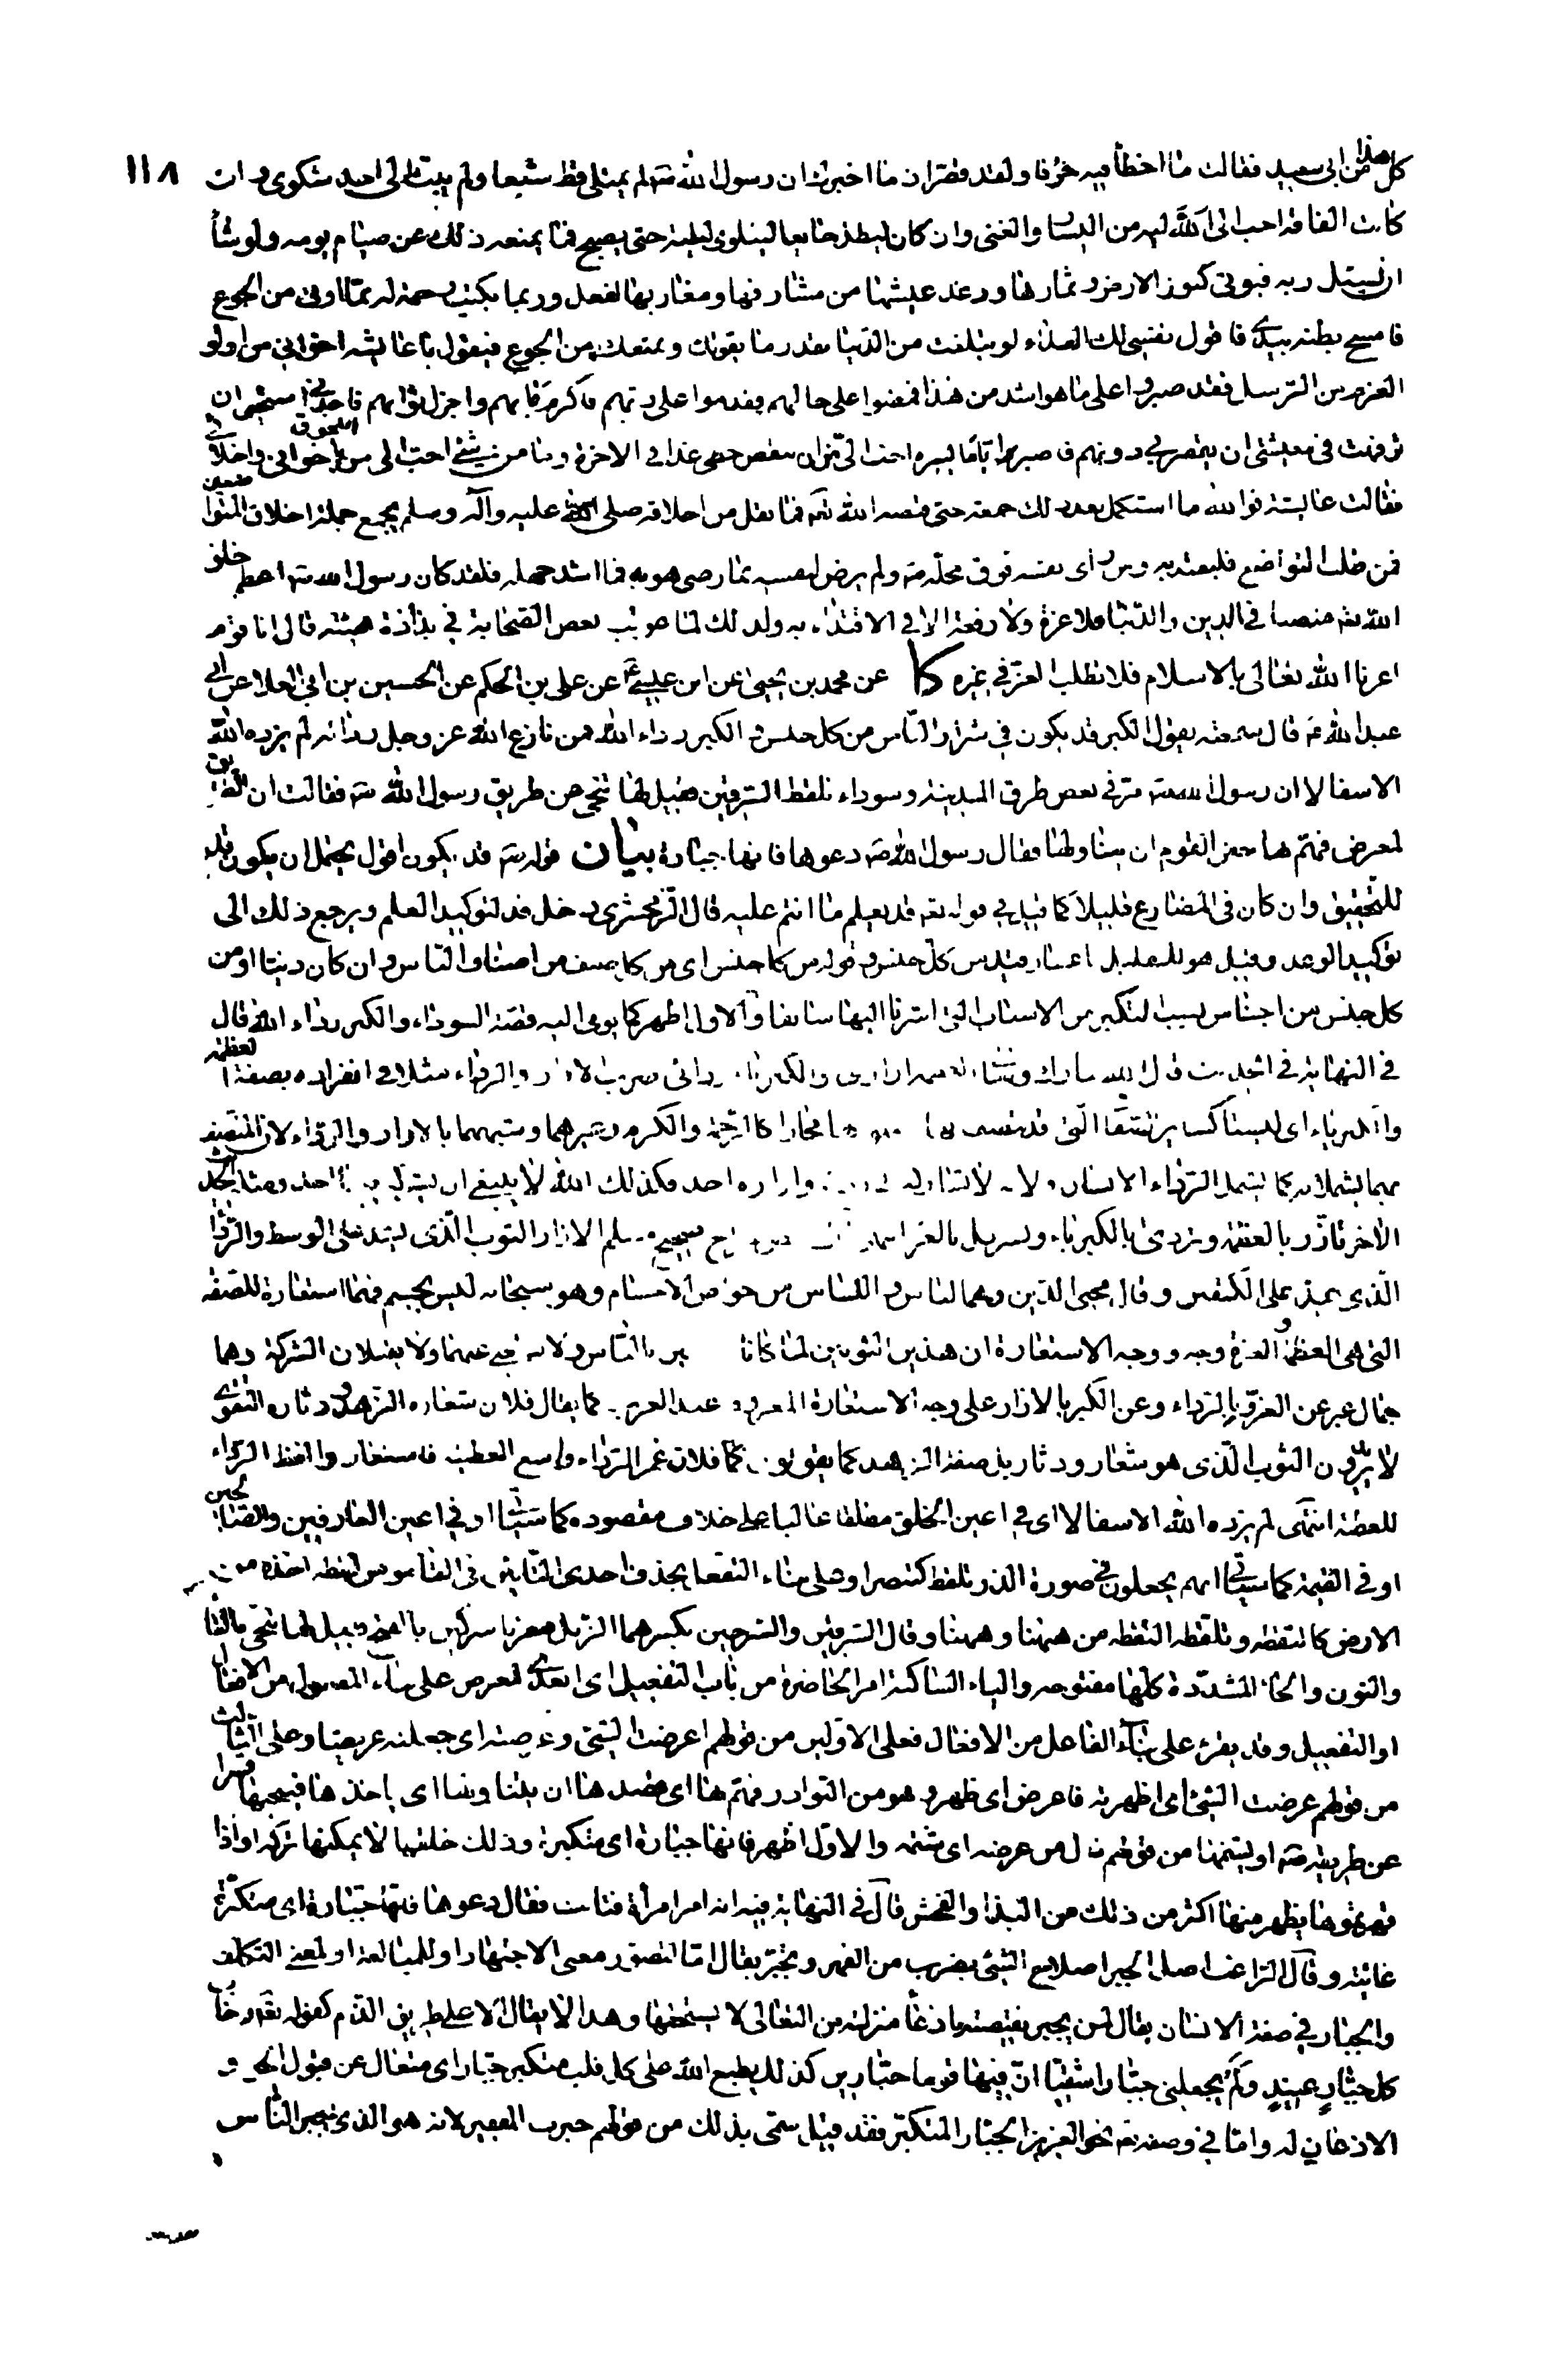 ١١٨
كل هذا من ابى سعيد فقالت ما اخطأ فيه حرفا ولقد قصر ان ما اخبرك ان رسول الله ص لم يمتلى قط شبعا ولم يبث الى احد شكوى و ان
كانت الفاقة احب اليه من اليسار والغنى وان كان ليظل جايعا ليتلوى ليلته حتى يصبح فما يمنعه ذلك عن صيام يومه ولو شآء
ان يسئل ربه فيوتى كنوز الارض و ثمارها ورغد عيشها من مشارقها ومغاربها لفعل وربما بكيت رحمة له مما اوتى من الجوع
فامسح بطنه بيدى فاقول نفسى لك الفداء لو تبلغت من الدنيا بقدر ما يقوتك ويمنعك من الجوع فيقول يا عايشه اخوانى من اولو
العزم من الرسل فقد صبروا على ما هو اشد من هذا فمضوا على حالهم فقدموا على ربهم فاكرم مآبهم واجزل ثوابهم فاجدنى استحيى ان
ترفهت فى معيشتى ان يقصر بى دونهم فاصبر اياما يسيره احب الى من ان ينقص حظى غدا فى الاخرة وما من شئ احب الى من اللحوق باخواني واخلائى
فقالت عايشة فوالله ما استكمل بعد ذلك جمعه حتى قبضه الله تعالى فما نقل من اخلاقه صلى الله عليه وآله وسلم يجمع جملة اخلاق المتواضعين
فمن طلب التواضع فليقتد به ومن رأى نفسه فوق محله ص ولم يرض لنفسه بما رضى هو به فما اشد جهله فلقد كان رسول الله ص اعظم خلق
الله تعه منصبا فى الدين والدنيا فلا عزة ولا رفعة الا فى الاقتداء به ولذلك لما عوتب بعض الصحابة في بذاذة هيئته قال انا قوم
اعزنا الله تعالى بالاسلام فلا نطلب العز في غيره كا عن محمد بن يحيى عن ابن عيسى عن على بن الحكم عن الحسين بن ابى العلا عن ابى
عبد الله ع قال سمعته يقول الكبر قد يكون في شرار الناس من كل جنس و الكبر رداء الله فمن نازع الله عز وجل ردائه لم يزده الله
الا سفالا ان رسول الله ص مر في بعض طرق المدينة وسوداء تلقط السرقين فقيل لها تنحى عن طريق رسول الله ص فقالت ان الطريق
لمعرض فهم بها بعض القوم ان يتناولها فقال رسول الله ص دعوها فانها جبارة بيان قوله ع قد يكون اقول يحتمل ان يكون قد
للتحقيق وان كان فى المضارع قليلا كما قيل في قوله تعه قد يعلم ما انتم عليه قال الزمخشرى دخل قد لتوكيد العلم ويرجع ذلك الى
توكيد الوعد وقيل هو للتقليل باعتبار قيد من كل جنس و قوله من كل جنس اى من كل صنف من اصناف الناس وان كان دنيا او من
كل جنس من اجناس سبب التكبر من الاسباب التى اشرنا اليها سابقا والاول اظهر كما يومى اليه قصة السوداء والكبر رداء الله قال
فى النهاية فى الحديث قال الله تبارك وتعالى العظمة ازارى والكبرياء ردائى ضرب الازار والرداء مثلا فى انفراده بصفة العظمة
والكبرياء اى ليستا كسائر الصفات التى قد يتصف بها الخلق مجازا كالرحمة والكرم وغيرهما وشبههما بالازار والرداء لان المتصف
بهما يشملانه كما يشمل الرداء الانسان ولانه لا يشاركه فى ردائه وازاره احد فكذلك الله لا ينبغى ان يشركه فيهما احد ومثله الحديث
الآخر تأزر بالعظمة وتردى بالكبرياء وتسربل بالعز صحيح مسلم الازار الثوب الذى يشد على الوسط والرداء
الذى يمد على الكتفين وقال محيى الدين وهما لباس و اللباس من خواص الاجسام وهو سبحانه ليس بجسم فهما استعارة للصفة
التى هى العظمة و العزة ووجه الاستعارة ان هذين الثوبين لما كانا بالناس ولا يستغنى عنهما ولا يقبلان الشركة وهما
جمال عبر عن العز بالرداء وعن الكبر بالازار على وجه الاستعارة المعروفة عند العرب كما يقال فلان شعاره الزهد و دثاره التقوى
لا يريدون الثوب الذى هو شعار ودثار بل صفة الزهد كما يقولون فلان غمر الرداء واسع العطية فاستعاروا لفظ الرداء
للعطية انتهى لم يزده الله الا سفالا اى في اعين الخلق مطلقا غالبا على خلاف مقصوده كما سيأتى او في اعين العارفين والصالحين
او فى القيمة كما سيأتى انهم يجعلون فى صورة الذر تلقط كتنصر او على بناء التفعل بحذف احدى التائين فى القاموس لقطه اخذه من
الارض كالتقطه وتلقطه التقطه من ههنا وههنا وقال السرقين والسرجين بكسرهما الزبل معربا سركين بالفتح فقيل لها تنحى بالتاء
والنون والحاء المشددة كلها مفتوحه والياء الساكنة امر الحاضرة من باب التفعيل اى ابعدى لمعرض على بناء المفعول من الافعال
او التفعيل وقد يقرء على بناء الفاعل من الافعال فعلى الاولين من قولهم اعرضت الشئ وعرضته اى جعلته عريضا وعلى الثالث
من قولهم عرضت الشئ اى اظهرته فاعرض اى ظهر و هو من النوادر فهم بها اى قصد ها ان يتناولها اى ياخذها فينحيها قهرا
عن طريقه ص او يشتمها من قولهم نال من عرضه اى شتمه والاول اظهر فانها جبارة اى متكبرة وذلك خلقها لا يمكنها تركه او اذا
قهرتموها يظهر منها اكثر من ذلك من البذاء والفحش قال في النهاية فيه انه امر امرأة فتابت فقال دعوها فانها جبارة اى متكبرة
عاتية وقال الراغب اصل الجبر اصلاح الشئ بضرب من القهر وتجبر يقال اما لتصور معنى الاجتهاد او للمبالغة او لمعنى التكلف
والجبار في صفة الانسان يقال لمن يجبر نقيصته بادعاء منزلة من التعالى لا يستحقها وهذا لا يقال الا على طريق الذم كقوله تعه وخاب
كل جبار عنيد ولم يجعلنى جبارا شقيا ان فيها قوما جبارين كذلك يطبع الله على كل قلب متكبر جبار اى متعال عن قبول الحق و
الاذعان له واما في وصفه تعه نحو العزيز الجبار المتكبر فقد قيل سمى بذلك من قولهم جبرت الفقير لانه هو الذى يجبر الناس